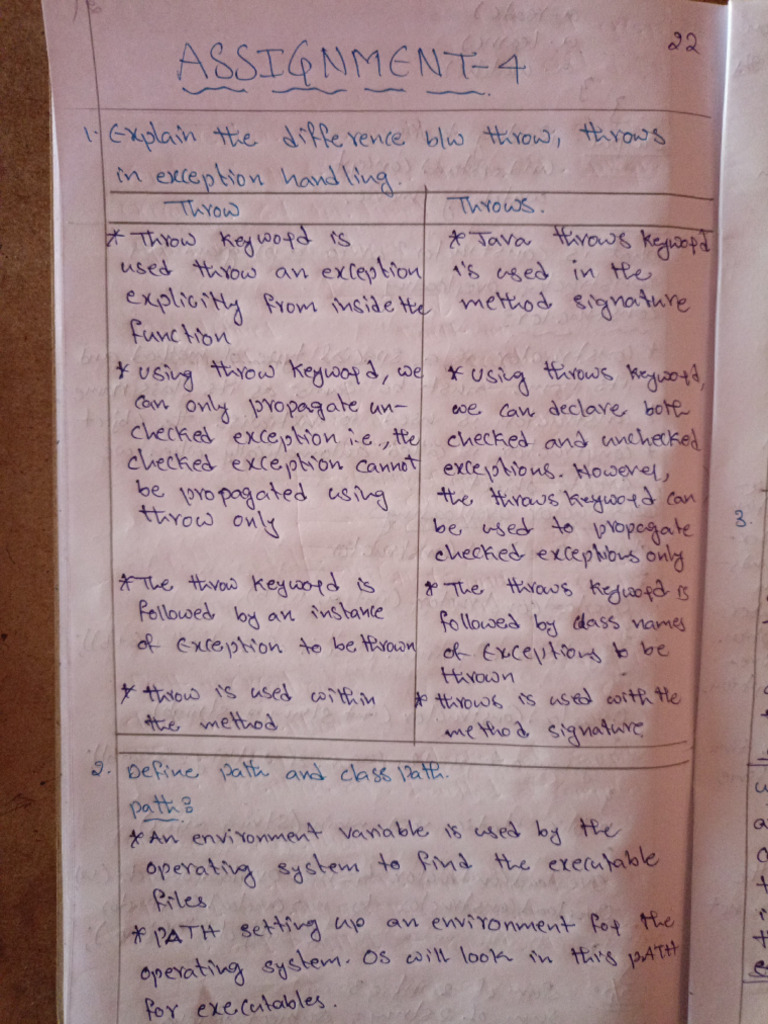 22
ASSIGNMENT-4
1. Explain the difference b/w throw, throws
in exception handling.
Throw
* Throw keyword is
used throw an exception
explicitly from inside the
function
* using throw keyword, we
can only propagate un-
checked exception i.e., the
checked exception cannot
be propagated using
throw only
* The throw keyword is
followed by an instance
of Exception to be thrown
* throw is used within
the method
Throws.
* Java throws keyword
is used in the
method signature
* using throws keyword,
we can declare both
checked and unchecked
exceptions. However,
the throws keyword can
be used to propagate
checked exceptions only
* The throws keyword is
followed by class names
of Exceptions to be
thrown
* throws is used with the
method signature
2. Define path and class path.
path:
* An environment variable is used by the
operating system to find the executable
files
* PATH setting up an environment for the
operating system. OS will look in this PATH
for executables.
3.